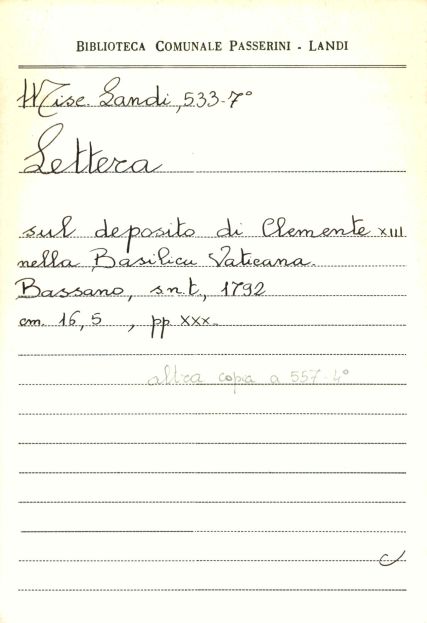 BIBLIOTECA COMUNALE PASSERINI - LANDI
Misc. Landi, 533-7°
Lettera
sul deposito di Clemente XIII
nella Basilica Vaticana.
Bassano, s.n.t., 1792
cm. 16,5 , pp. XXX.
altra copia a 557-4°